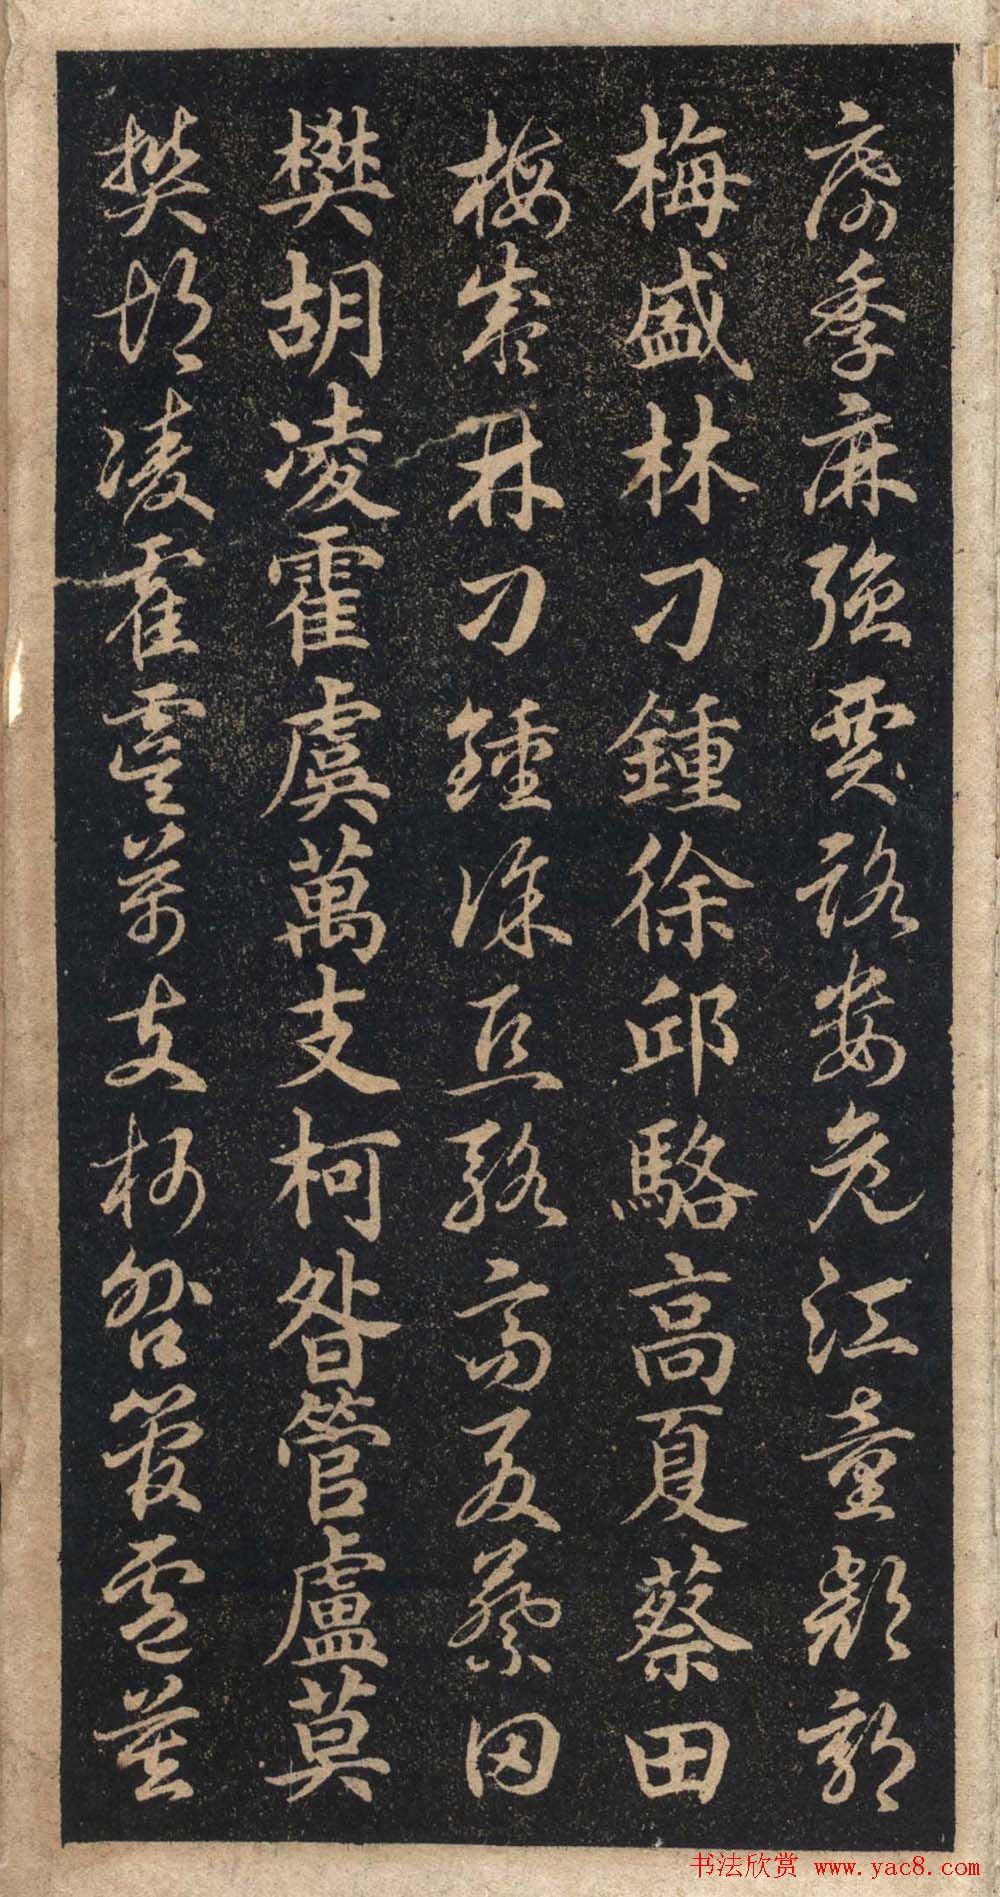 席季麻強賈路婁危江童顏郭
梅盛林刁鍾徐邱駱高夏蔡田
梅盛林刁鍾徐邱駱高夏蔡田
樊胡凌霍虞萬支柯昝管盧莫
樊胡凌霍虞萬支柯昝管盧莫
书法欣赏 www.yac8.com